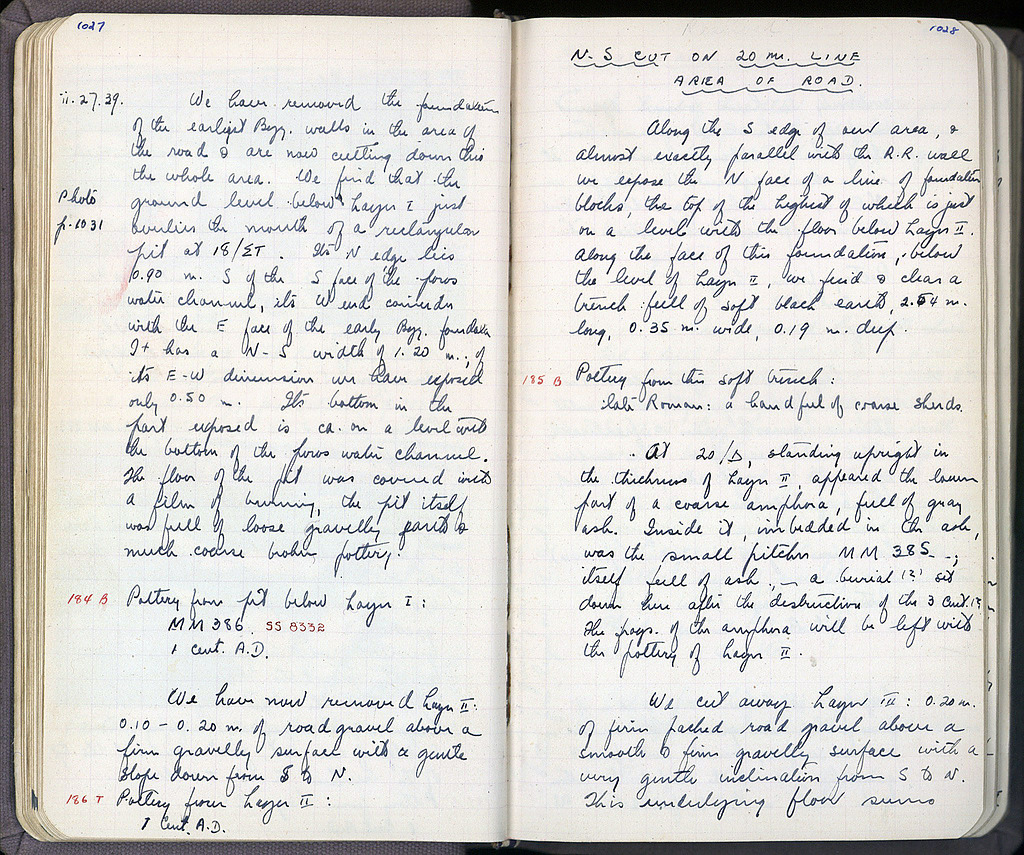 1027
ii.27.39.
We have removed the foundation
of the earliest Byz. walls in the area of
the road & are now cutting down this
the whole area. We find that the
ground level below Layer I just
overlies the mouth of a rectangular
pit at 18/ΣΤ. Its N edge lies
0.90 m. S of the S face of the poros
water channel, its W end coincides
with the E face of the early Byz. foundation
It has a N-S width of 1.20 m.; of
its E-W dimension we have exposed
only 0.50 m. Its bottom in the
part exposed is ca. on a level with
the bottom of the poros water channel.
The floor of the pit was covered with
a film of burning, the pit itself
was full of loose gravelly earth &
much coarse broken pottery.
Photo
p. 1031
184 B Pottery from pit below Layer I:
MM 386. SS 8332
1 cent. A.D.
We have now removed Layer II:
0.10 - 0.20 m. of road gravel above a
firm gravelly surface with a gentle
slope down from S to N.
186 T Pottery from Layer II:
1 Cent. A.D.
1028
N-S CUT ON 20 m. LINE
AREA OF ROAD.
Along the S edge of our area, &
almost exactly parallel with the R.R. wall
we expose the N face of a line of foundation
blocks, the top of the highest of which is just
on a level with the floor below Layer II.
Along the face of this foundation, below
the level of Layer II, we find & clear a
trench full of soft black earth, 2.54 m.
long, 0.35 m. wide, 0.19 m. deep.
185 B Pottery from this soft trench:
late Roman: a handful of coarse sherds.
At 20/Δ, standing upright in
the thickness of Layer II, appeared the lower
part of a coarse amphora, full of gray
ash. Inside it, imbedded in the ash,
was the small pitcher MM 385 -;
itself full of ash, - a burial (?) set
down here after the destruction of the 3 cent. (?)
The frags. of the amphora will be left with
the pottery of Layer II.
We cut away Layer III: 0.20 m.
of firm packed road gravel above a
smooth & firm gravelly surface with a
very gentle inclination from S to N.
This underlying floor seems